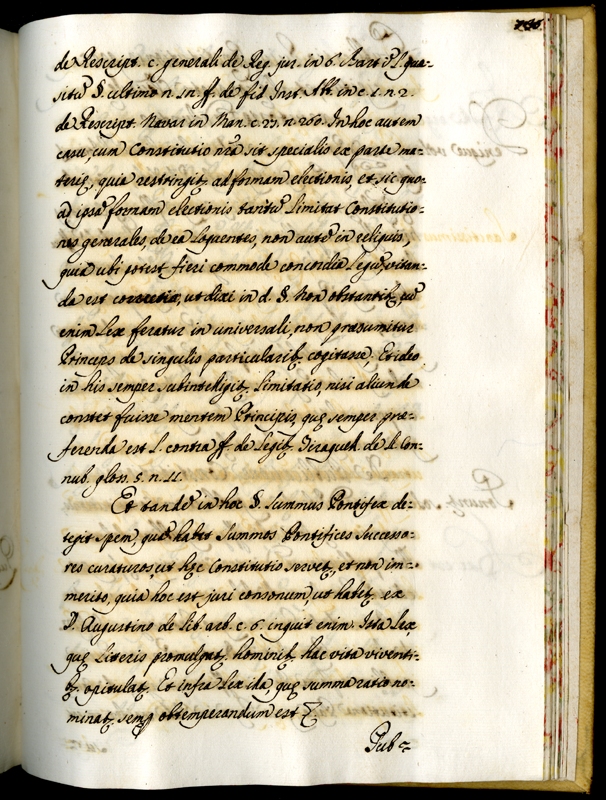 de Rescript. c. generali de Reg. jur. in 6. Bart. ĩ l. quæ-
situ §. ultimo n. 1. ff. de fid. Inst. Abb. in c. 1. n. 2.
de Rescript. Navar in Man. c. 27. n. 260. In hoc autem
casu, cum Constitutio nr̃a sit specialis ex parte ma-
terię, quia restringit, ad formam electionis, et sic quo-
ad ipsã formam electionis tantũ limitat Constitutio-
nes generales, de ea loquentes, non autẽ in reliquis,
quia ubi potest fieri commode concordia legũ, vitan-
da est correctio, ut dixi in d. §. Non obstantib;, cũ
enim Lex feratur in universali, non præsumitur
Princeps de singulis particularib; cogitasse, Et ideo
in his semper subintelligit, limitatio, nisi aliunde
constet fuisse mentem Principis, quę semper præ-
ferenda est l. contra ff. de legib; Tiraquell. de ll. Con-
nub. gloss. 5. n. 11.
Et tandẽ in hoc §. summus Pontifex de-
tegit spem, quã habet summos Pontifices successo-
res curaturos, ut hęc Constitutio servet, et non im-
merito, quia hoc est juri consonum, ut habet, ex
D. Augustino de lib. arb. c. 6. inquit enim. Ista Lex,
quę literis promulgat, hominib; hac vita viventi-
b; opitulat. Et infra Lex illa quę summa ratio no-
minat, semp obtemperandum est
Pub-